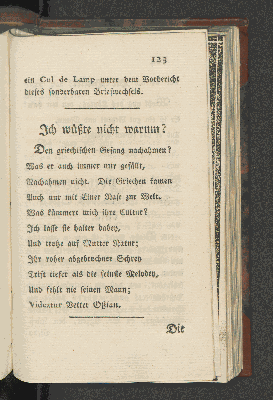 123
ein Cul de Lamp unter dem Vorbericht
dieses sonderbaren Briefwechsels.
Ich wüßte nicht warum?
Den griechischen Gesang nachahmen?
Was er auch immer mir gefällt,
Nachahmen nicht. Die Griechen kamen
Auch nur mit Einer Nase zur Welt.
Was kümmert mich ihre Cultur?
Ich lasse sie halter dabey,
Und trotze auf Mutter Natur;
Ihr roher abgebrochner Schrey
Trift tiefer als die feinste Melodey,
Und fehlt nie seinen Mann;
Videatur Vetter Oßian.
Die